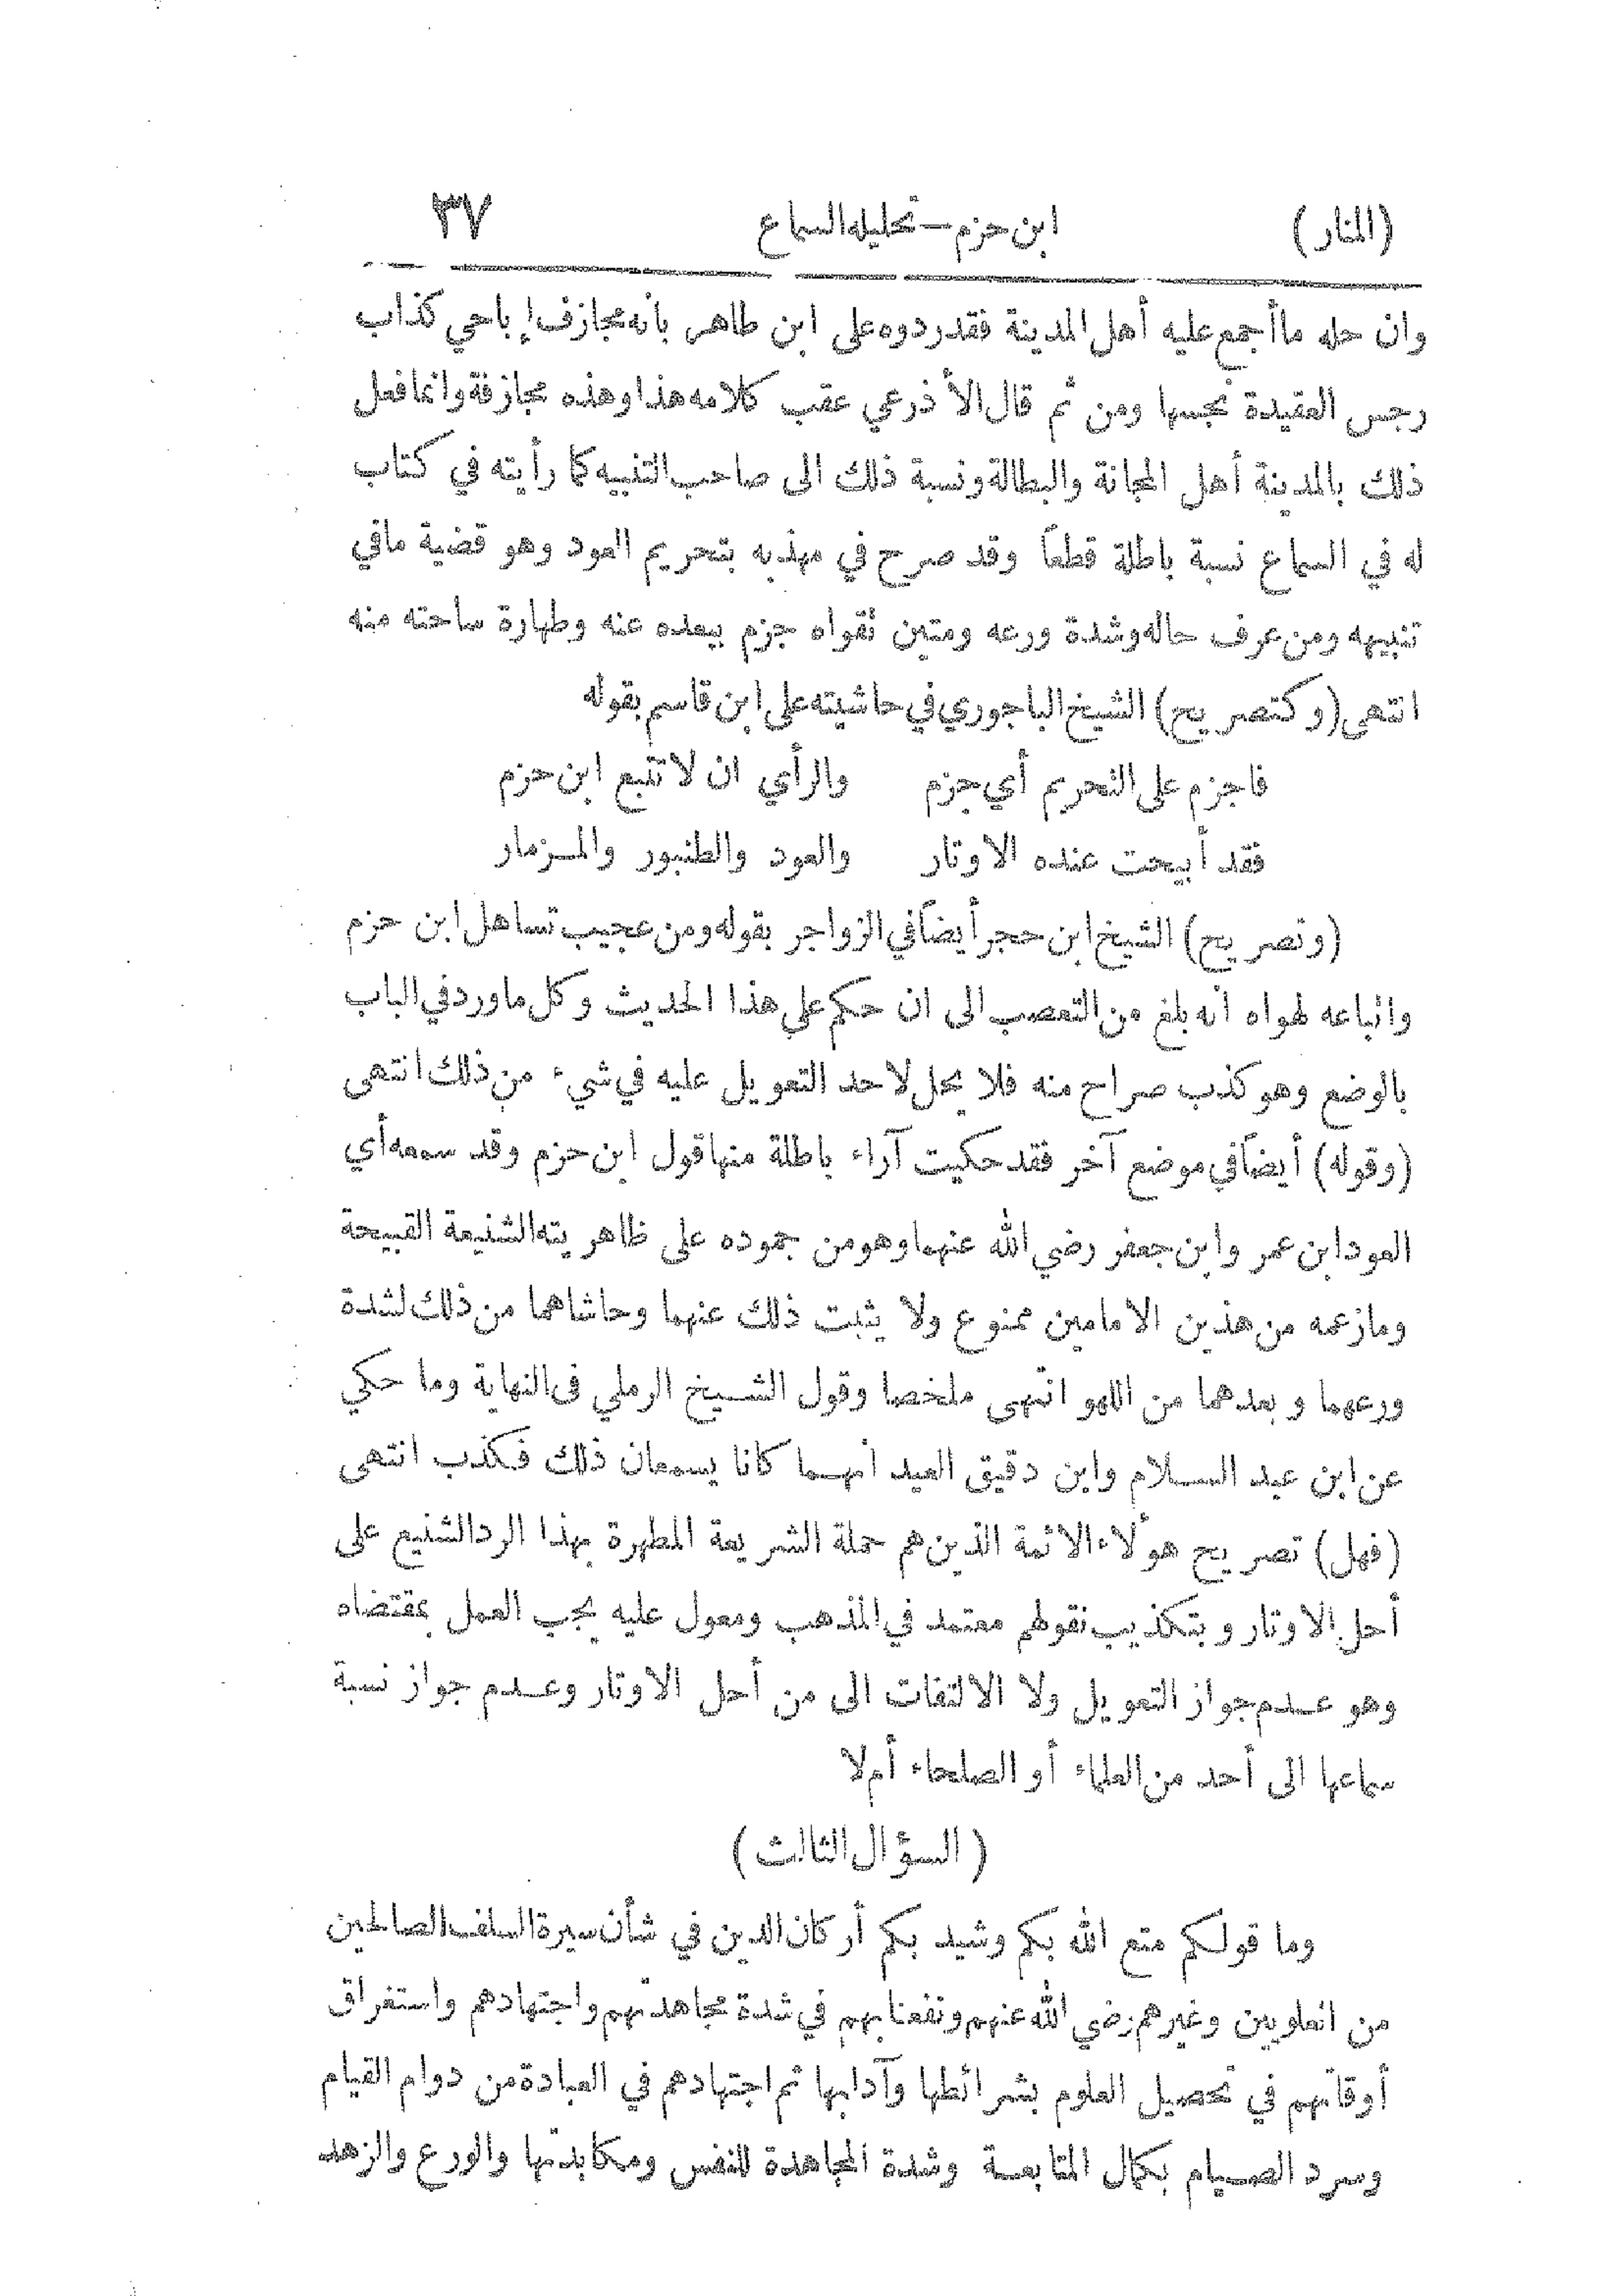 (المنار) ابن حزم — تحليله السماع ٣٧
وان حله ما أجمع عليه أهل المدينة فقد ردوه على ابن طاهر بأنه مجازف إباحي كذاب
رجس العقيدة نجسها ومن ثم قال الأذرعي عقب كلامه هذا وهذه مجازفة وانما فعل
ذلك بالمدينة أهل المجانة والبطالة ونسبة ذلك الى صاحب التنبيه كما رأيته في كتاب
له في السماع نسبة باطلة قطعاً وقد صرح في مهذبه بتحريم العود وهو قضية ما في
تنبيهه ومن عرف حاله وشدة ورعه ومتين تقواه جزم ببعده عنه وطهارة ساحته منه
انتهى (وكتصريح) الشيخ الباجوري في حاشيته على ابن قاسم بقوله
فاجزم على التحريم أي جزم والرأي ان لا تتبع ابن حزم
فقد أبيحت عنده الاوتار والعود والطنبور والمزمار
(وتصريح) الشيخ ابن حجر أيضاً في الزواجر بقوله ومن عجيب تساهل ابن حزم
واتباعه لهواه انه بلغ من التعصب الى ان حكم على هذا الحديث وكل ما ورد في الباب
بالوضع وهو كذب صراح منه فلا يحل لاحد التعويل عليه في شيء من ذلك انتهى
(وقوله) أيضاً في موضع آخر فقد حكيت آراء باطلة منها قول ابن حزم وقد سمعه أي
العود ابن عمر وابن جعفر رضي الله عنهما وهو من جموده على ظاهريته الشنيعة القبيحة
وما زعمه من هذين الامامين ممنوع ولا يثبت ذلك عنهما وحاشاهما من ذلك لشدة
ورعهما وبعدهما من اللهو انتهى ملخصا وقول الشيخ الرملي في النهاية وما حكي
عن ابن عبد السلام وابن دقيق العيد انهما كانا يسمعان ذلك فكذب انتهى
(فهل) تصريح هؤلاء الائمة الذين هم حملة الشريعة المطهرة بهذا الرد الشنيع على
أحل الاوتار وبتكذيب نقولهم معتمد في المذهب ومعول عليه يجب العمل بمقتضاه
وهو عدم جواز التعويل ولا الالتفات الى من أحل الاوتار وعدم جواز نسبة
سماعها الى أحد من العلماء أو الصلحاء أم لا
(السؤال الثالث)
وما قولكم متع الله بكم وشيد بكم أركان الدين في شأن سيرة السلف الصالحين
من العلويين وغيرهم رضي الله عنهم ونفعنا بهم في شدة مجاهدتهم واجتهادهم واستغراق
أوقاتهم في تحصيل العلوم بشرائطها وآدابها ثم اجتهادهم في العبادة من دوام القيام
وسرد الصيام بكمال المتابعة وشدة المجاهدة للنفس ومكابدتها والورع والزهد